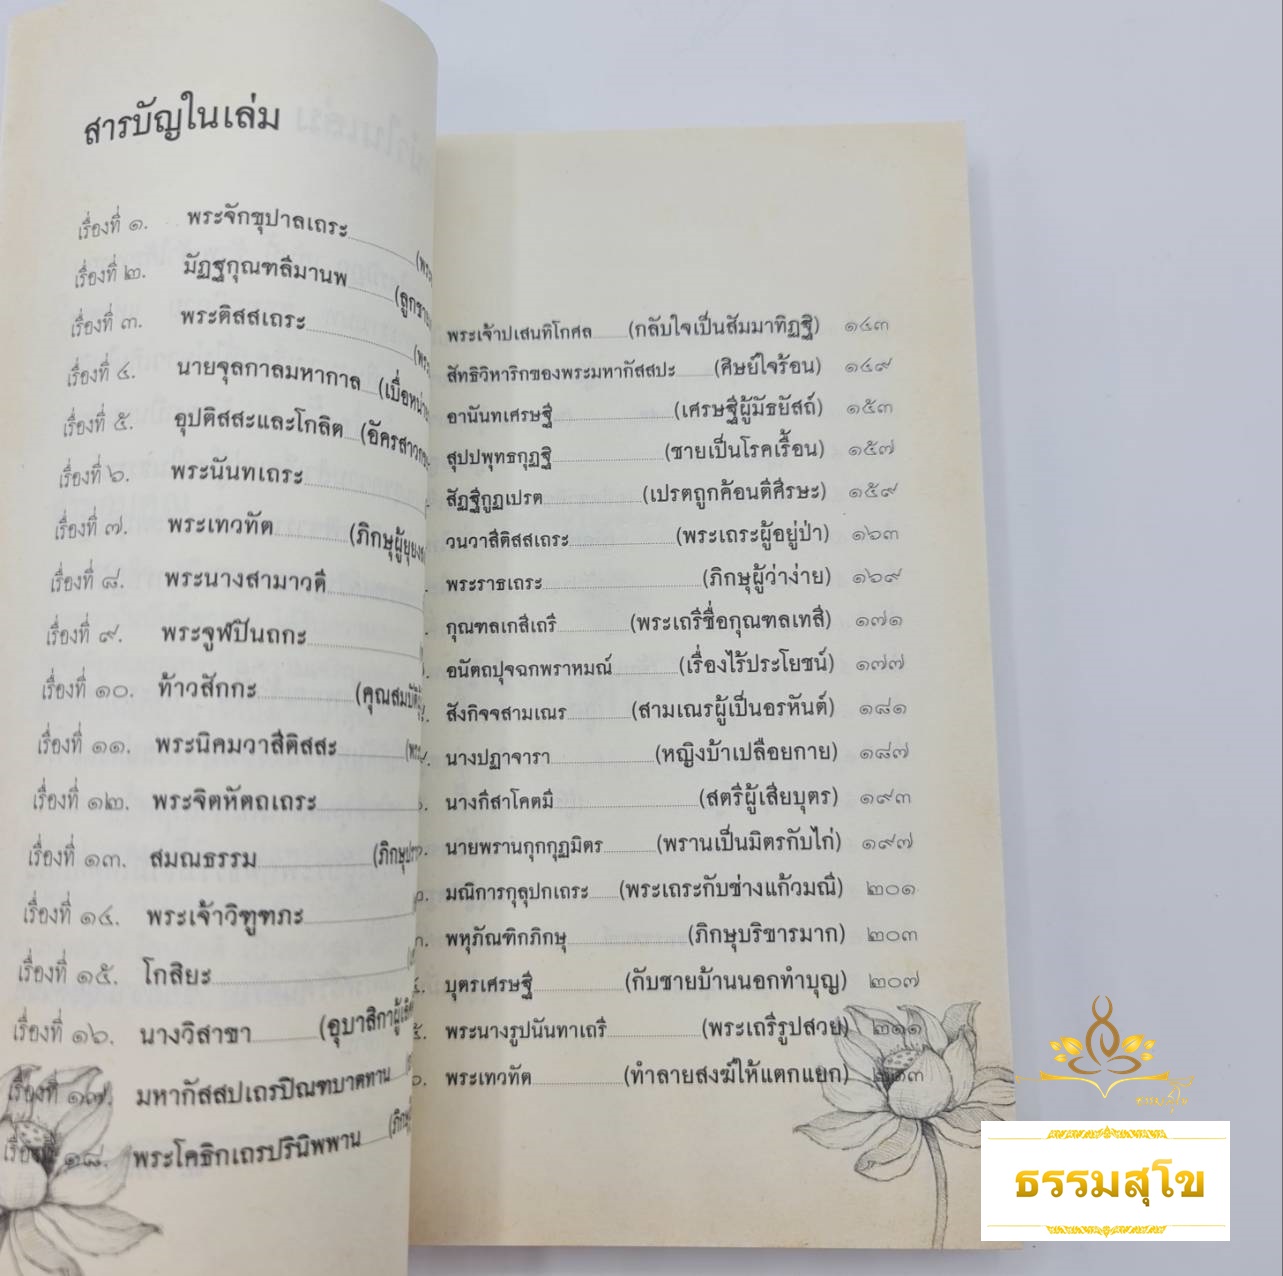 สารบัญในเล่ม
เรื่องที่ ๑. พระจักขุปาลเถระ
เรื่องที่ ๒. มัฏฐกุณฑลีมานพ
เรื่องที่ ๓. พระติสสเถระ
เรื่องที่ ๔. นายจุลกาลมหากาล (เบื่อหน่าย
เรื่องที่ ๕. อุปติสสะและโกลิต (อัครสาวก
เรื่องที่ ๖. พระนันทเถระ
เรื่องที่ ๗. พระเทวทัต (ภิกษุผู้ยุยง
เรื่องที่ ๘. พระนางสามาวดี
เรื่องที่ ๙. พระจูฬปันถกะ
เรื่องที่ ๑๐. ท้าวสักกะ (คุณสมบัติ
เรื่องที่ ๑๑. พระนิคมวาสีติสสะ
เรื่องที่ ๑๒. พระจิตหัตถเถระ
เรื่องที่ ๑๓. สมณธรรม (ภิกษุ
เรื่องที่ ๑๔. พระเจ้าวิฑูฑภะ
เรื่องที่ ๑๕. โกสิยะ
เรื่องที่ ๑๖. นางวิสาขา (อุบาสิกาผู้
เรื่องที่ ๑๗. มหากัสสปเถรปิณฑบาตทาน
เรื่องที่ ๑๘. พระโคธิกเถรปรินิพพาน (ภิกษุ
พระเจ้าปเสนทิโกศล (กลับใจเป็นสัมมาทิฏฐิ) ๑๔๓
สัทธิวิหาริกของพระมหากัสสปะ (ศิษย์ใจร้อน) ๑๔๙
อานันทเศรษฐี (เศรษฐีผู้มัธยัสถ์) ๑๕๓
สุปปพุทธกุฏฐิ (ชายเป็นโรคเรื้อน) ๑๕๗
สัฏฐีกูฏเปรต (เปรตถูกค้อนตีศีรษะ) ๑๕๙
วนวาสีติสสเถระ (พระเถระผู้อยู่ป่า) ๑๖๓
พระราธเถระ (ภิกษุผู้ว่าง่าย) ๑๖๙
กุณฑลเกสีเถรี (พระเถรีชื่อกุณฑลเกสี) ๑๗๑
อนัตถปุจฉกพราหมณ์ (เรื่องไร้ประโยชน์) ๑๗๗
สังกิจจสามเณร (สามเณรผู้เป็นอรหันต์) ๑๘๑
นางปฏาจารา (หญิงบ้าเปลือยกาย) ๑๘๗
นางกีสาโคตมี (สตรีผู้เสียบุตร) ๑๙๓
นายพรานกุกกุฏมิตร (พรานเป็นมิตรกับไก่) ๑๙๗
มณิการกุลุปกเถระ (พระเถระกับช่างแก้วมณี) ๒๐๑
พหุภัณฑิกภิกษุ (ภิกษุบริขารมาก) ๒๐๓
บุตรเศรษฐี (กับชายบ้านนอกทำบุญ) ๒๐๗
พระนางรูปนันทาเถรี (พระเถรีรูปสวย) ๒๑๑
พระเทวทัต (ทำลายสงฆ์ให้แตกแยก) ๒๑๓
ธรรมสุโข
ธรรมสุโข